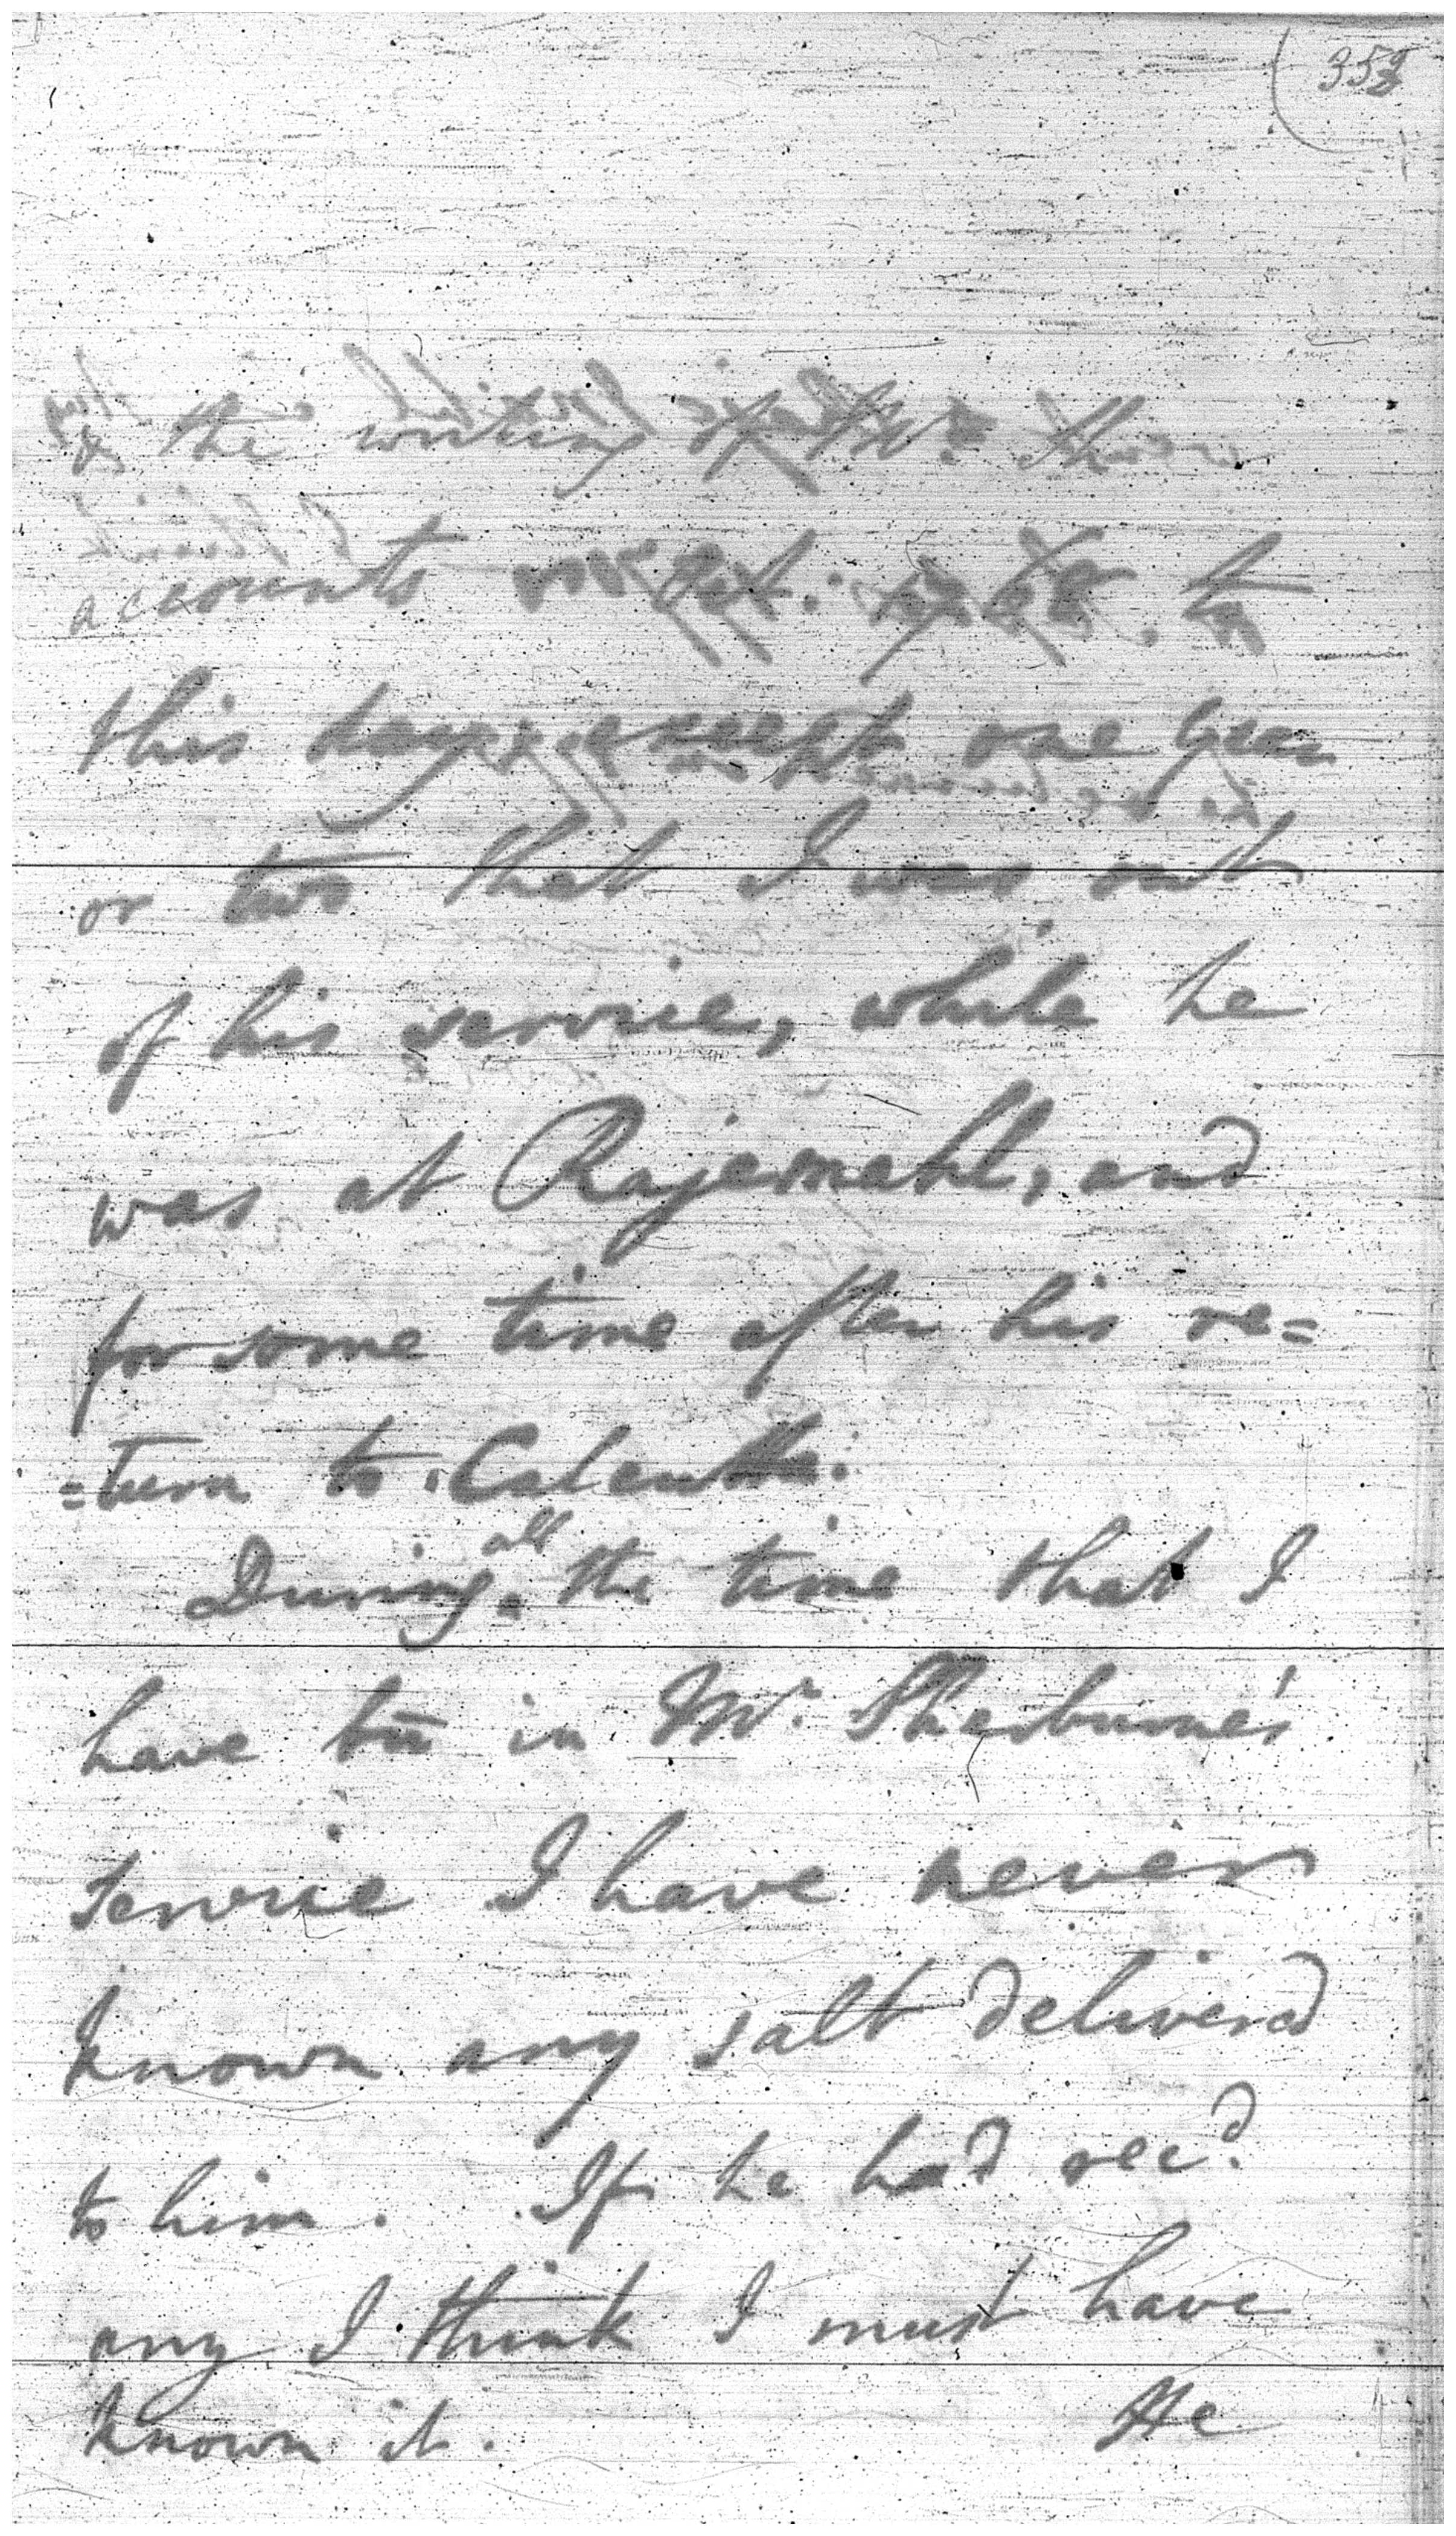 & the writing of these
accounts
this day, except one year
or two that I was out
of his service, while he
was at Rajemahl, and
for some time after his re=
=turn to Calcutta.
During all the time that I
have been in Mr. Sherburne's
Service I have never
known any salt deliverd
to him. If he had recd.
any I think I must have
known it.
He